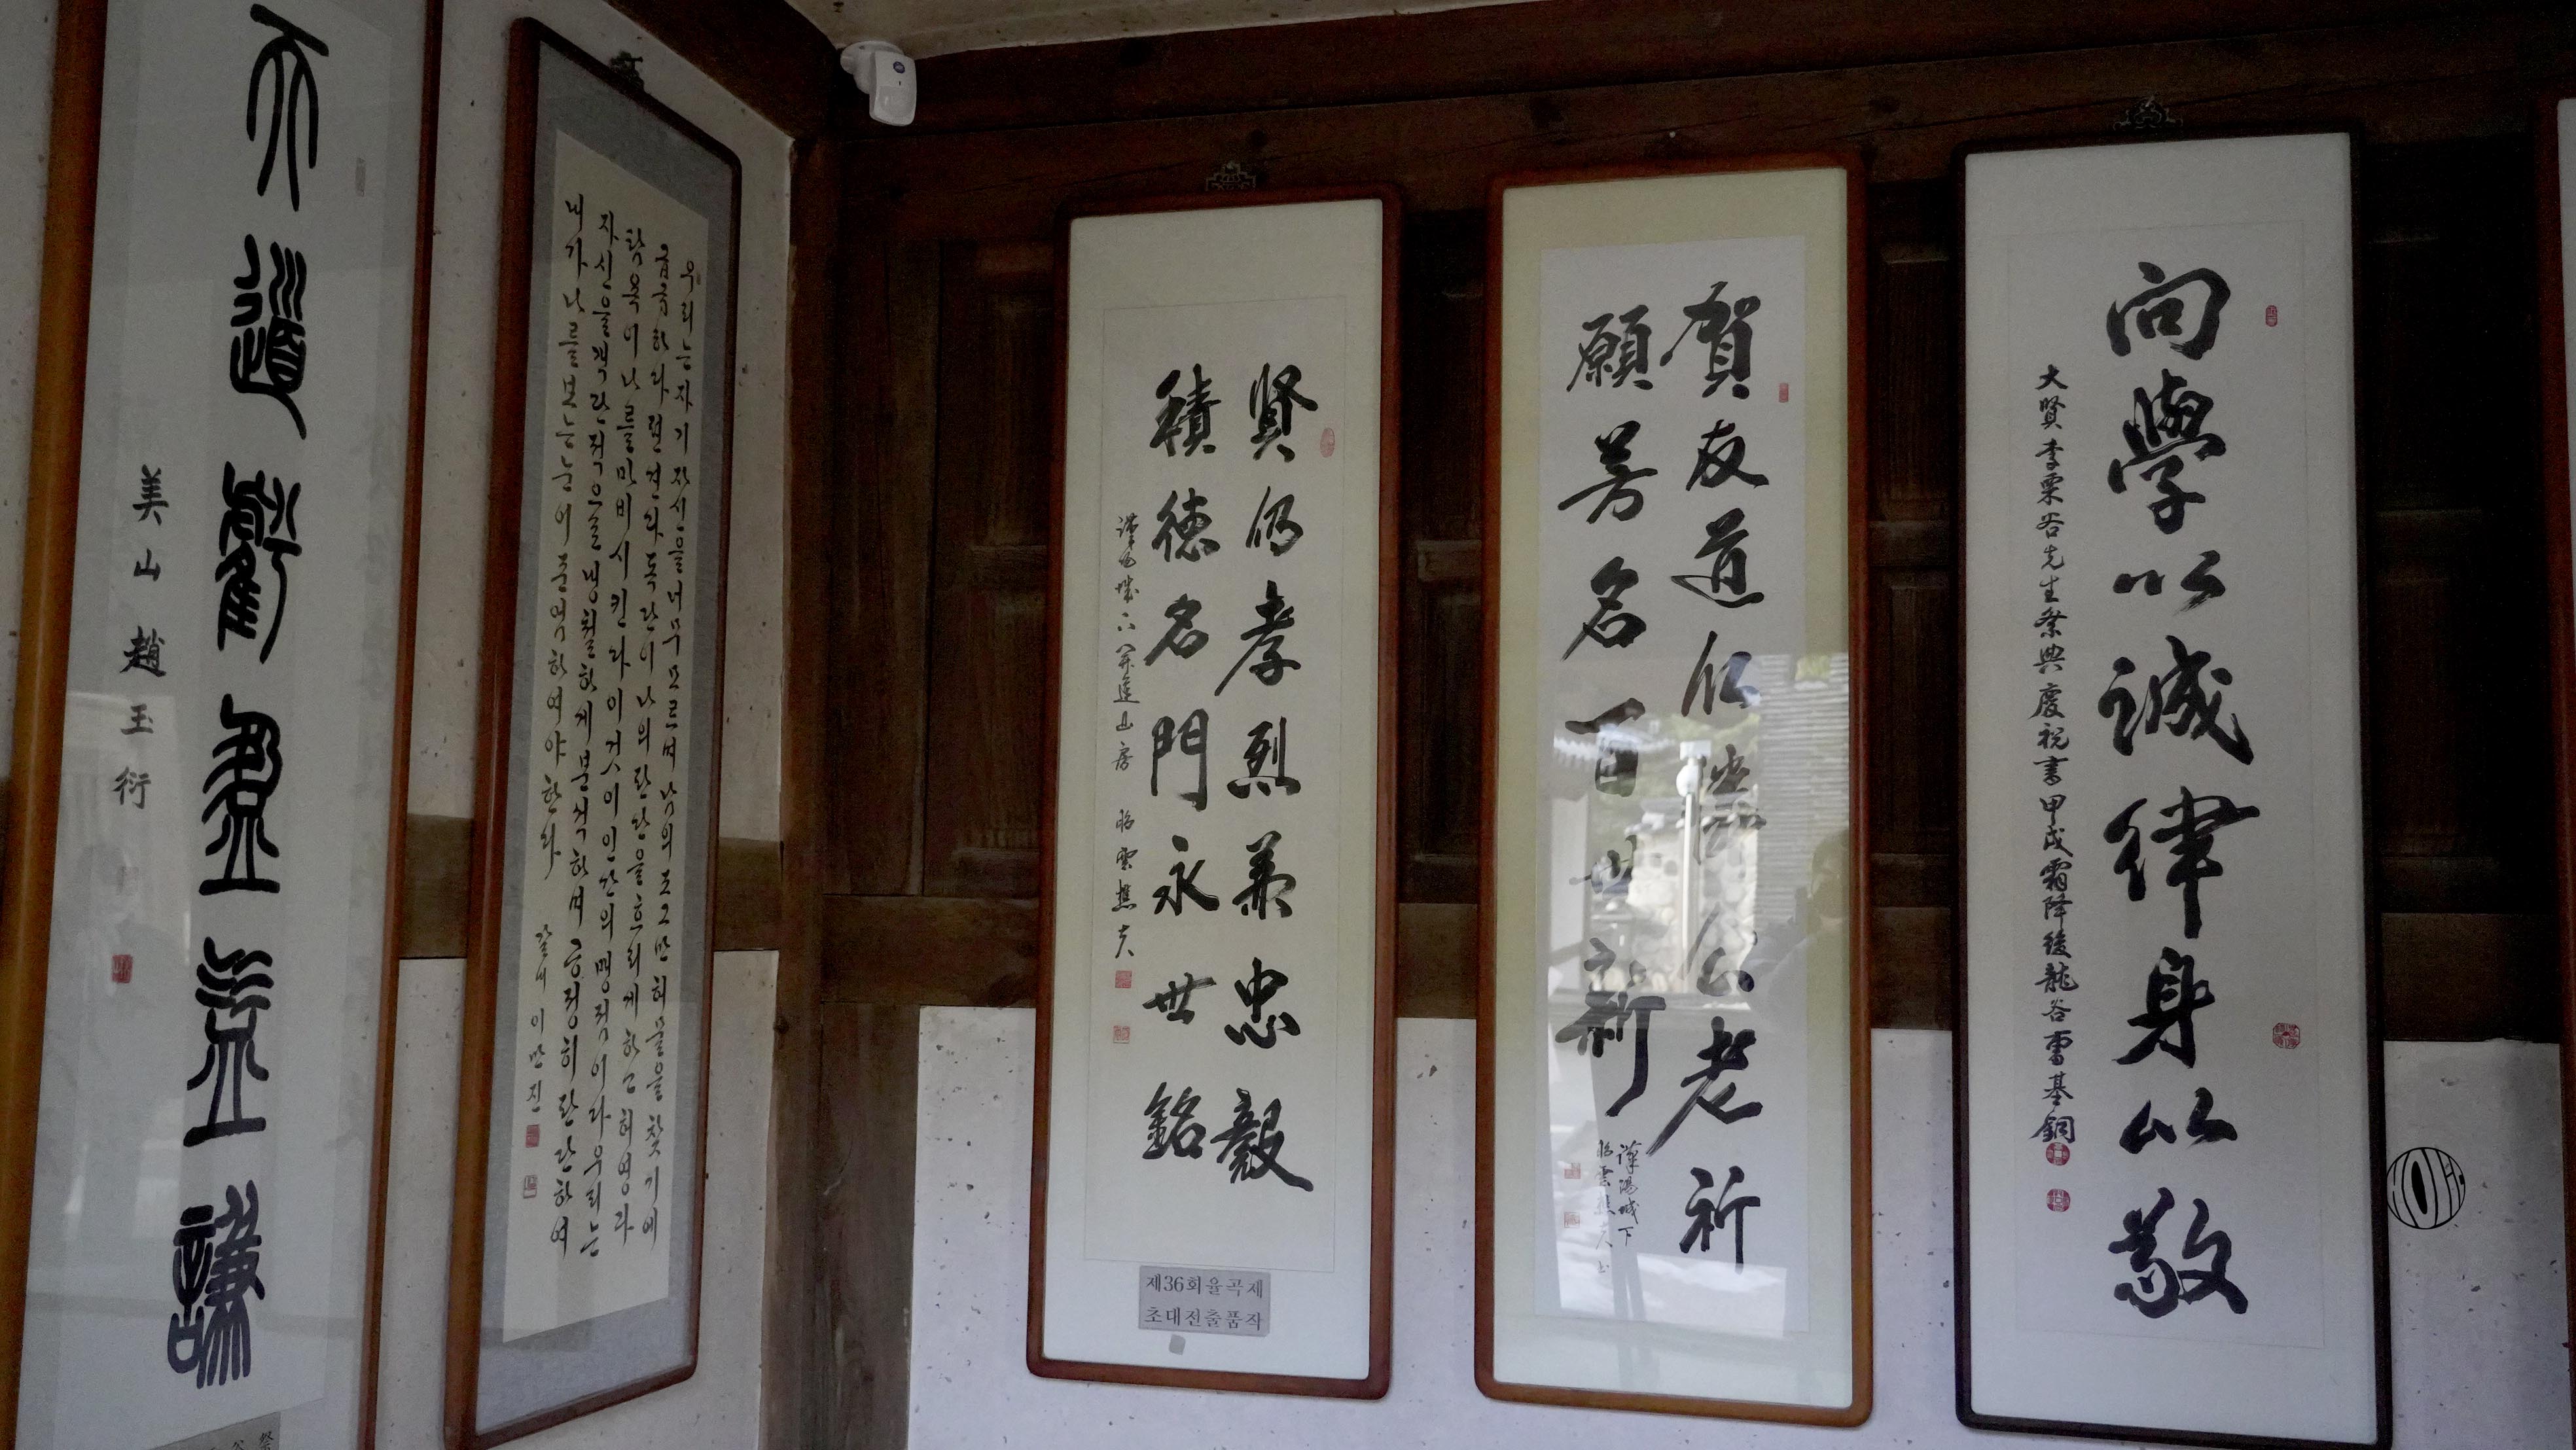 天道虧盈益謙
美山趙玉衍
우리는 자기 자신을 너무 모르며 남의 조그만 허물을 찾기에
급급하다 편견과 독단이 나의 판단을 흐리게 하고 허영과
탐욕이 나를 마비시킨다 이것이 인간의 맹점이다 우리는
자신을 객관적으로 냉철하게 분석하며 공정히 판단하여
내가 나를 보는 눈이 준엄하여야 한다
이만진
賢仍孝烈兼忠毅
積德名門永世銘
제36회율곡제
초대전출품작
賀友道仁 公老祈
願芳名百世新
漢陽城下
向學以誠律身以敬
大賢李栗谷先生祭典慶祝書甲戌霜降後龍谷曺基銅